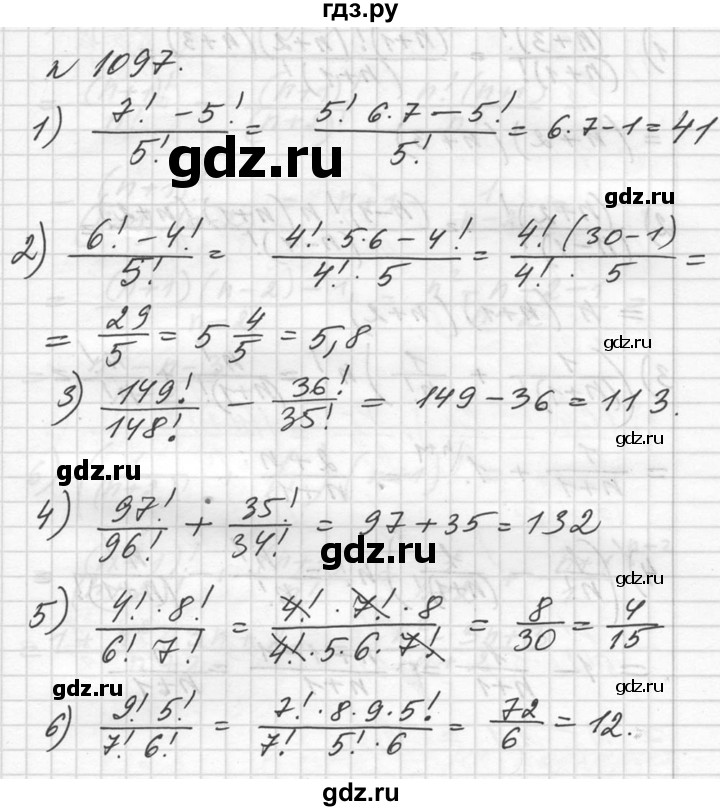 гдз.ру
№ 1097.
1) (7! - 5!)/5! = (5! 6·7 - 5!)/5! = 6·7-1=41
gdz.ru
gdz.ru
2) (6! - 4!)/5! = (4!·5·6 - 4!)/(4!·5) = (4!(30-1))/(4!·5) =
= 29/5 = 5 4/5 = 5,8
gdz.ru
3) 149!/148! - 36!/35! = 149-36=113.
gdz.ru
gdz.ru
4) 97!/96! + 35!/34! = 97+35=132
gdz.ru
gdz.ru
5) (4!·8!)/(6! 7!) = (4!·7!·8)/(4!·5·6·7!) = 8/30 = 4/15
gdz.ru
gdz.ru
6) (9! 5!)/(7! 6!) = (7!·8·9·5!)/(7! 5!·6) = 72/6 = 12.
gdz.ru
gdz.ru